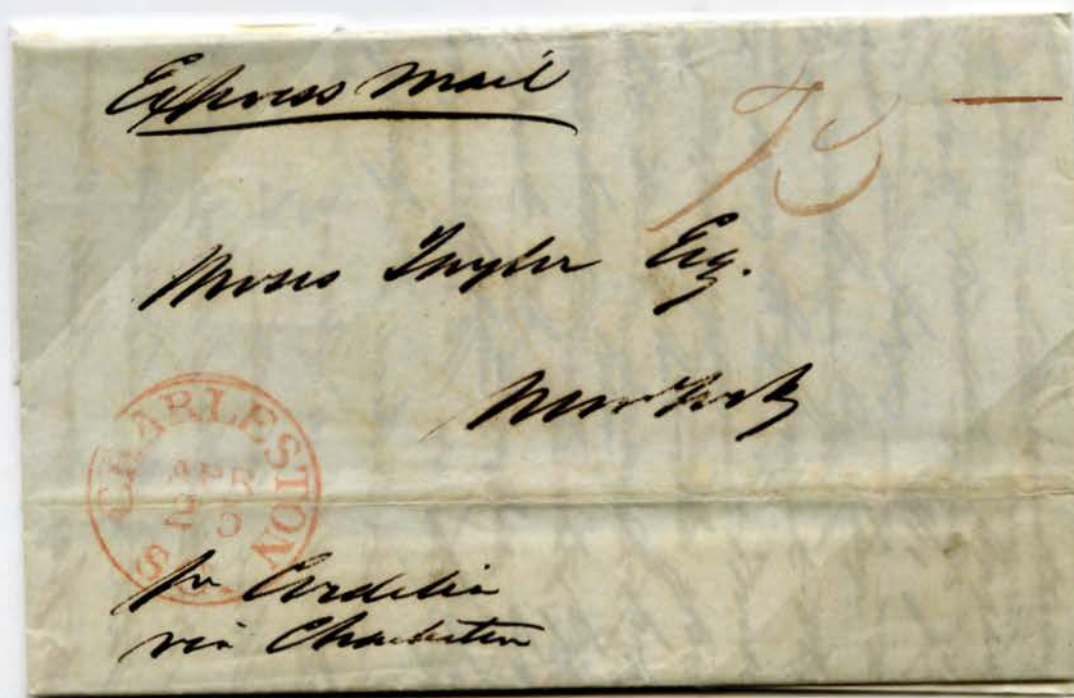 Express Mail
75
Moses Taylor Esq.
New York
CHARLESTON S
APR
pr Cordelia
via Charleston